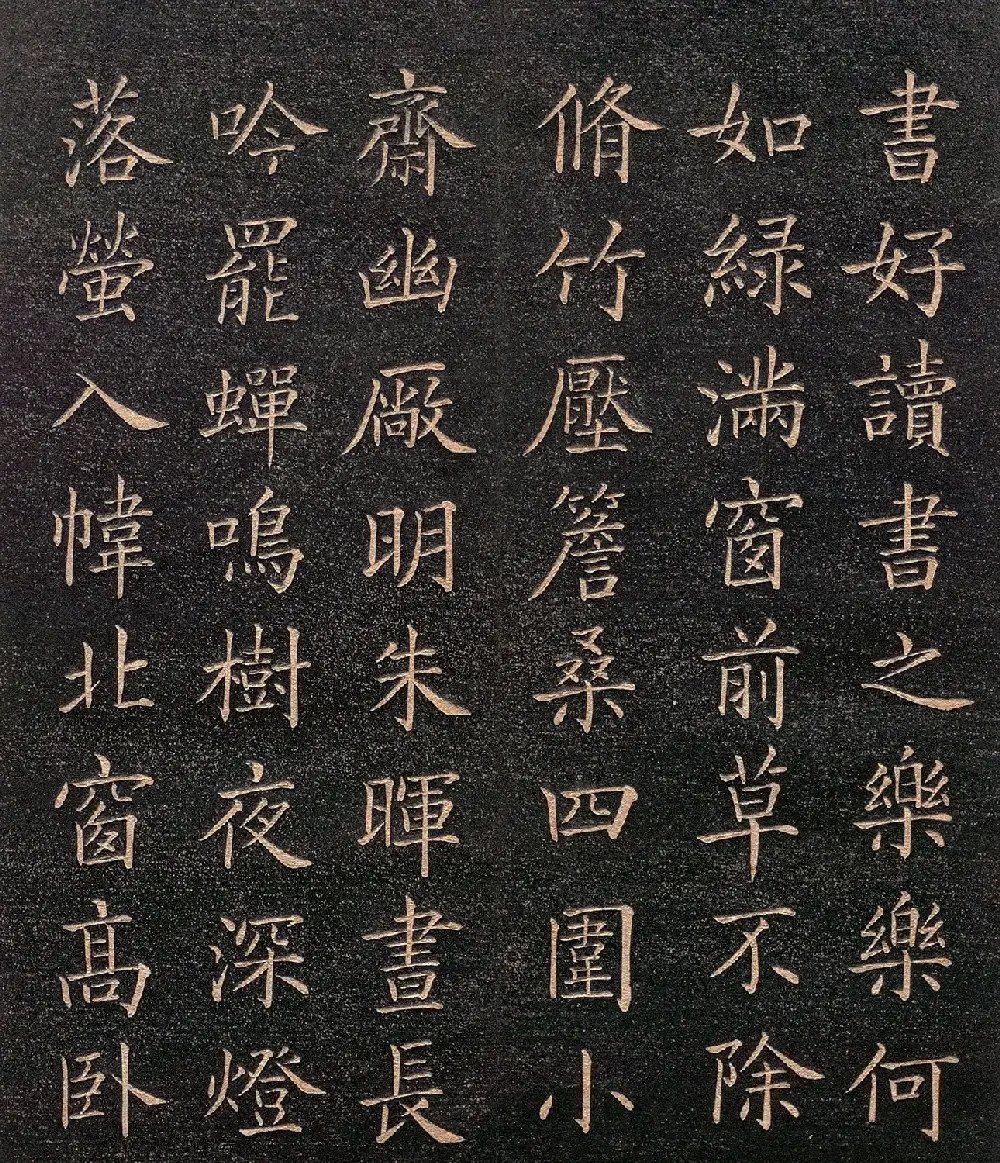 書好讀書之樂樂何
如綠滿窗前草不除
脩竹壓簷桑四圍小
齋幽厰明朱暉晝長
吟罷蟬鳴樹夜深燈
落螢入幃北窗髙卧